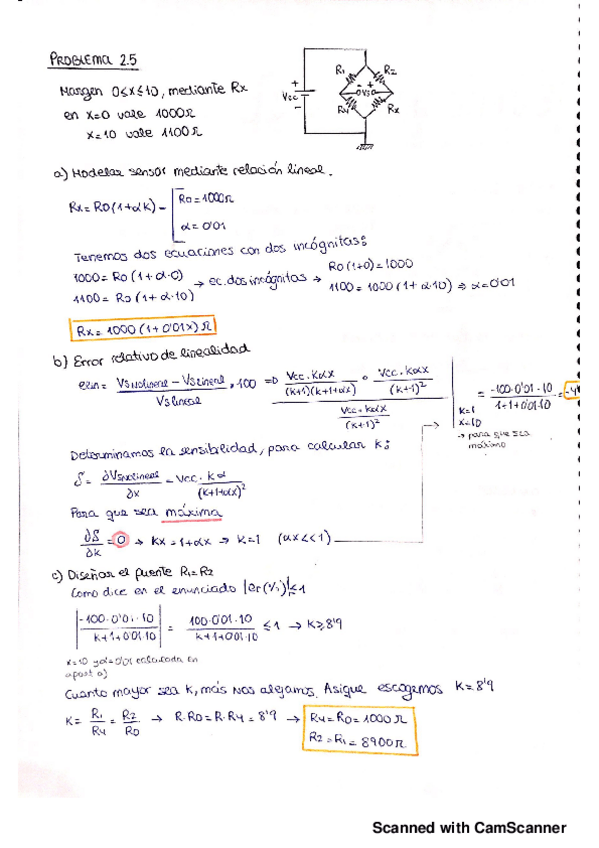 PROBLEMA 2.5
Margen 0≤x≤10, mediante Rx
en x=0 vale 1000Ω
x=10 vale 1100Ω
Vcc
+
-
R1
R2
- +
VS0
R4
Rx
a) Modelar sensor mediante relación lineal.
Rx = R0(1+αk) -
R0 = 1000Ω
α = 0'01
Tenemos dos ecuaciones con dos incógnitas:
1000 = R0 (1+α·0)
1100 = R0 (1+α·10)
→ ec. dos incógnitas →
R0 (1+0) = 1000
1100 = 1000 (1+α·10) ⇒ α=0'01
Rx = 1000 (1+0'01x) Ω
b) Error relativo de linealidad
elin = (VSnolineal - VSlineal / VSlineal) · 100 ⇒ (Vcc·kαx / (k+1)(k+1+αx) · Vcc·kαx / (k+1)²) / (Vcc·kαx / (k+1)²)
k=1
x=10
→ para que sea máximo
= -100·0'01·10 / 1+1+0'01·10 =
Determinamos la sensibilidad, para calcular k:
S = ∂VSnolineal / ∂x = Vcc · kα / (k+1+αx)²
Para que sea máxima
∂S/∂k = 0 → kx = 1+αx → k=1 (αx<<1)
c) Diseñar el puente R1=R2
Como dice en el enunciado |er(%)|≤1
|-100·0'01·10 / k+1+0'01·10| = 100·0'01·10 / k+1+0'01·10 ≤ 1 → k≥8'9
x=10 y α=0'01 calculada en
apart a)
Cuanto mayor sea k, más nos alejamos. Asique escogemos K=8'9
K = R1/R4 = R2/R0 → R·R0 = R·R4 = 8'9 →
R4 = R0 = 1000 Ω
R2 = R1 = 8900 Ω
Scanned with CamScanner